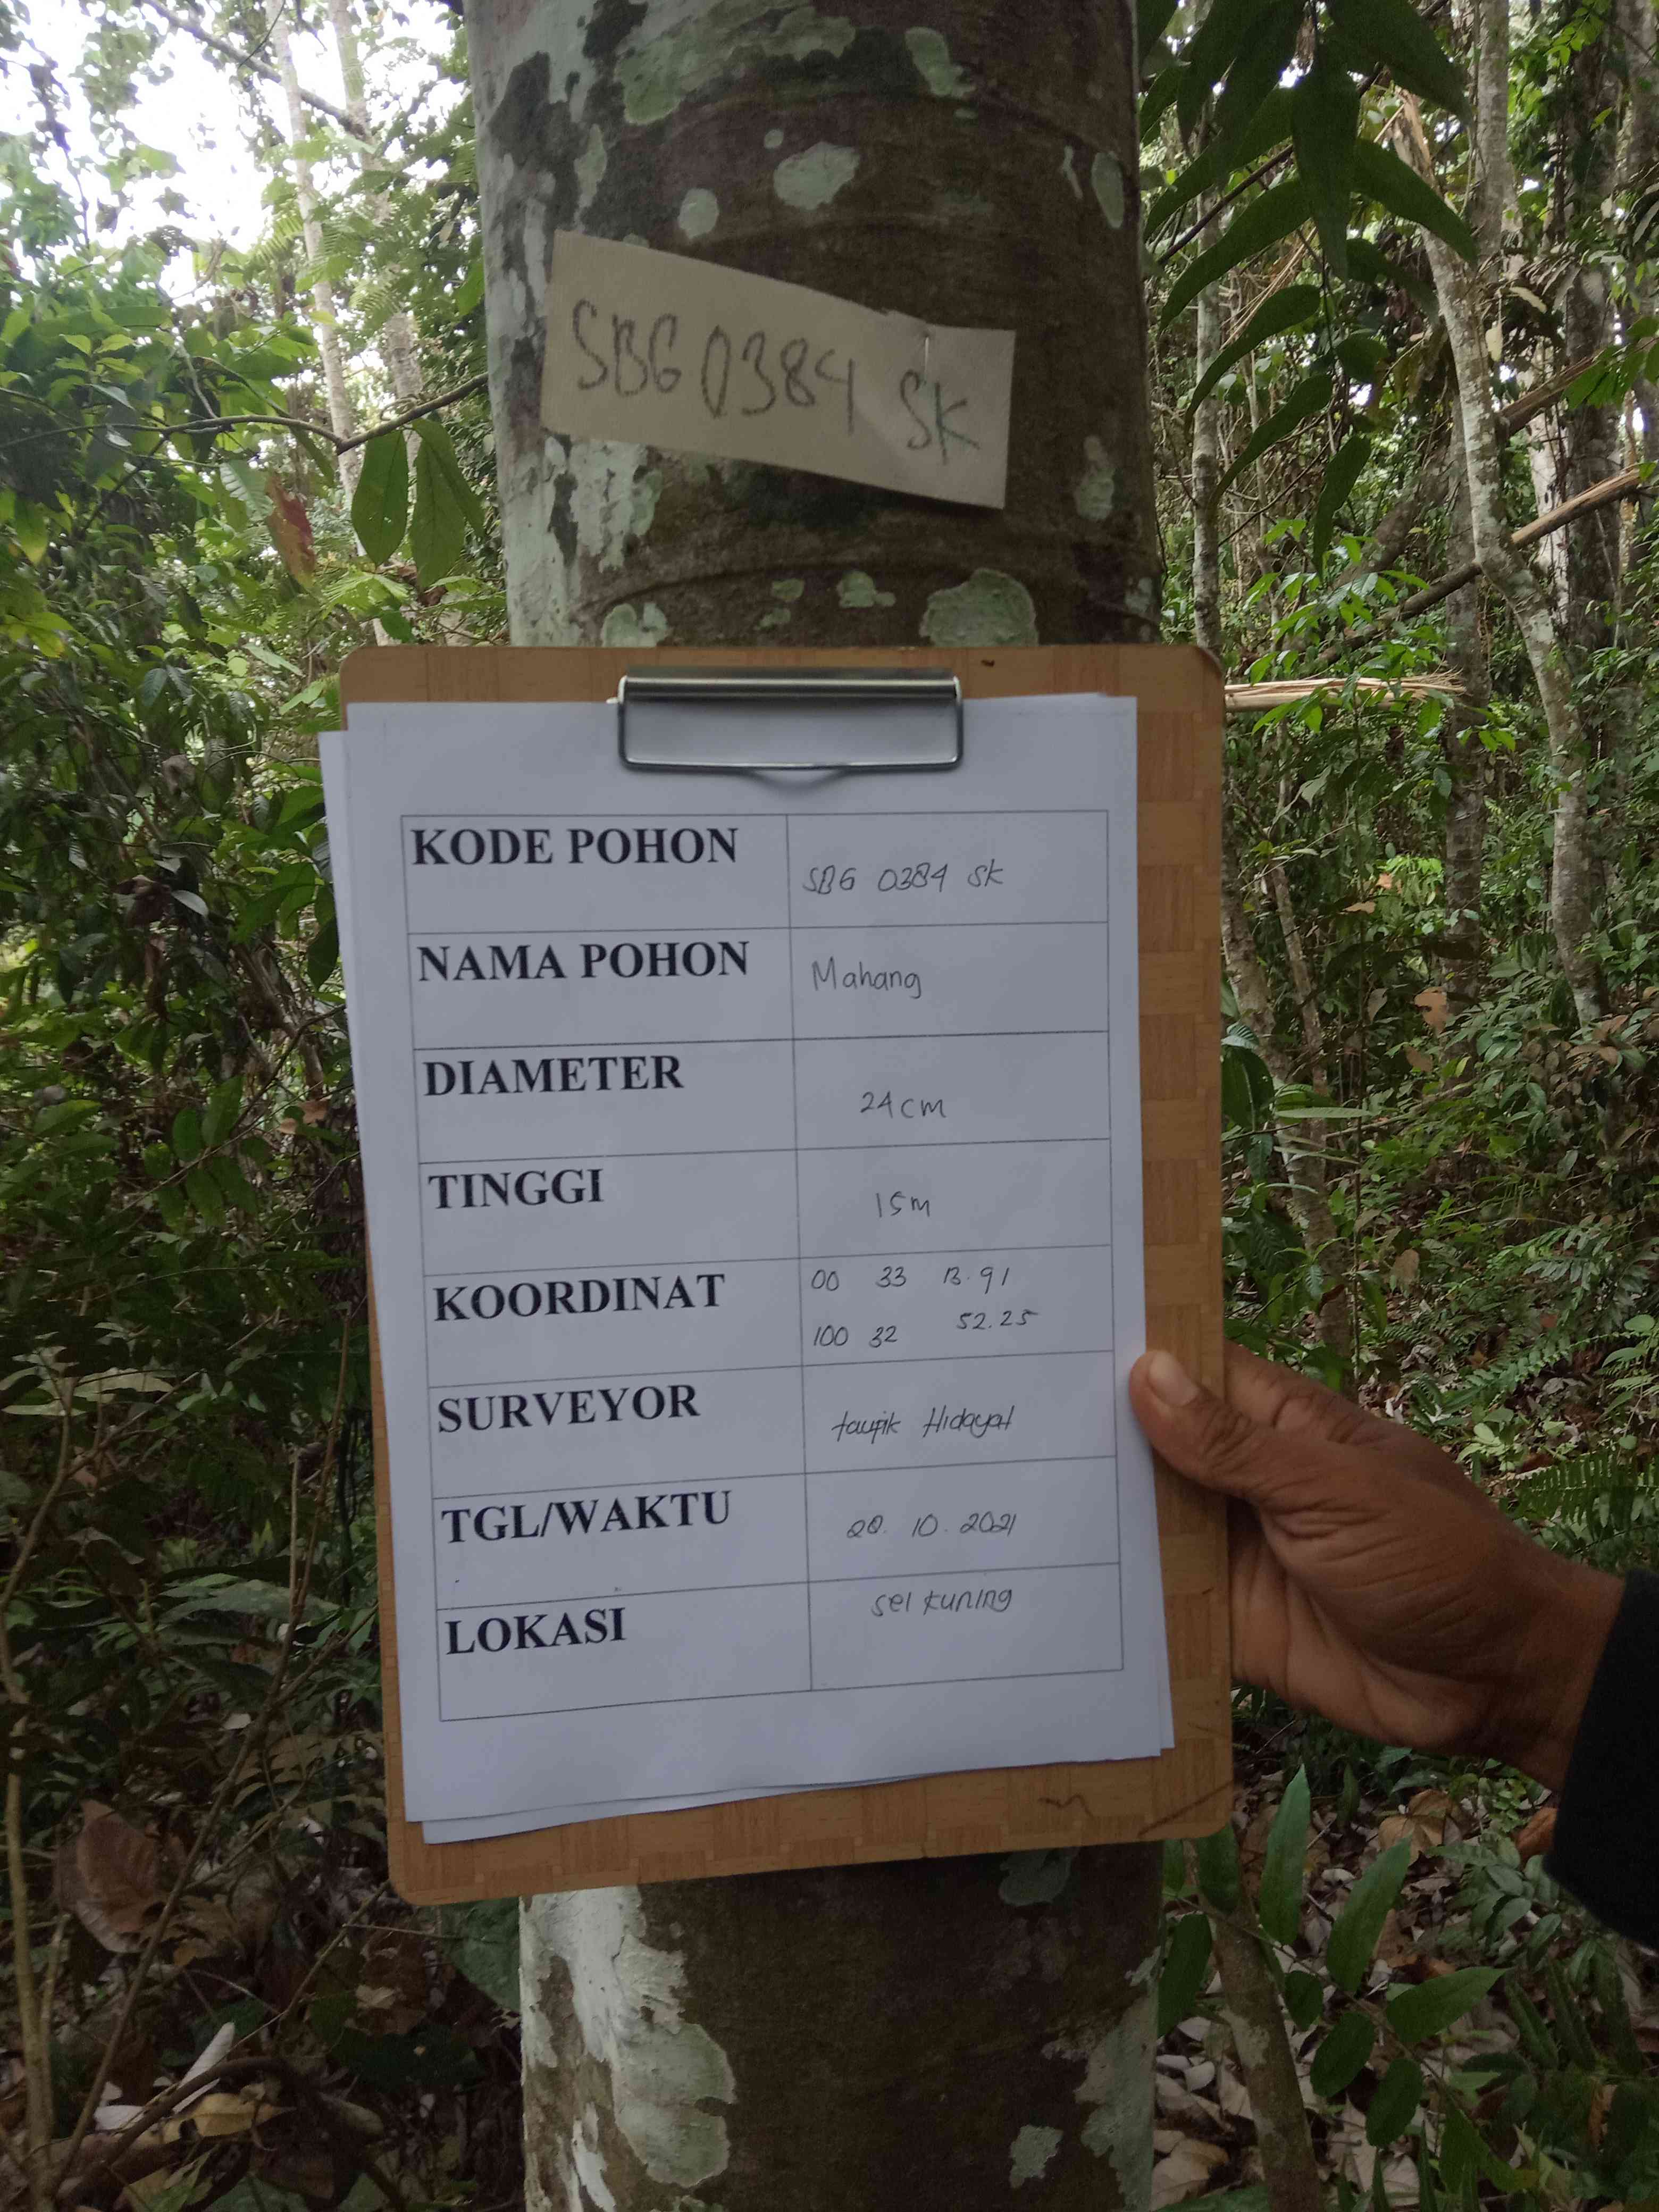 SBG 0384 SK
KODE POHON SBG 0384 SK
NAMA POHON Mahang
DIAMETER 24 cm
TINGGI 15 m
KOORDINAT 00 33 13.91
100 32 52.25
SURVEYOR taufik Hidayat
TGL/WAKTU 10. 2021
LOKASI sei kuning